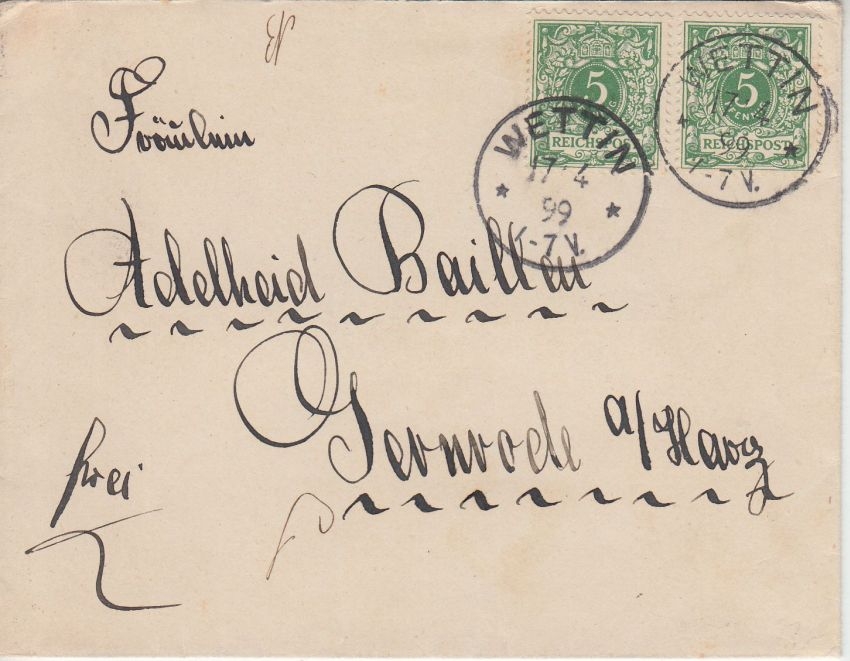 Fräulein
Adelheid Baillen
Gernrode a/Harz
frei
5
REICHSPOST
5
PFENNIG
REICHSPOST
WETTIN
17 4
99
-7 V.
WETTIN
17 4
99
-7 V.